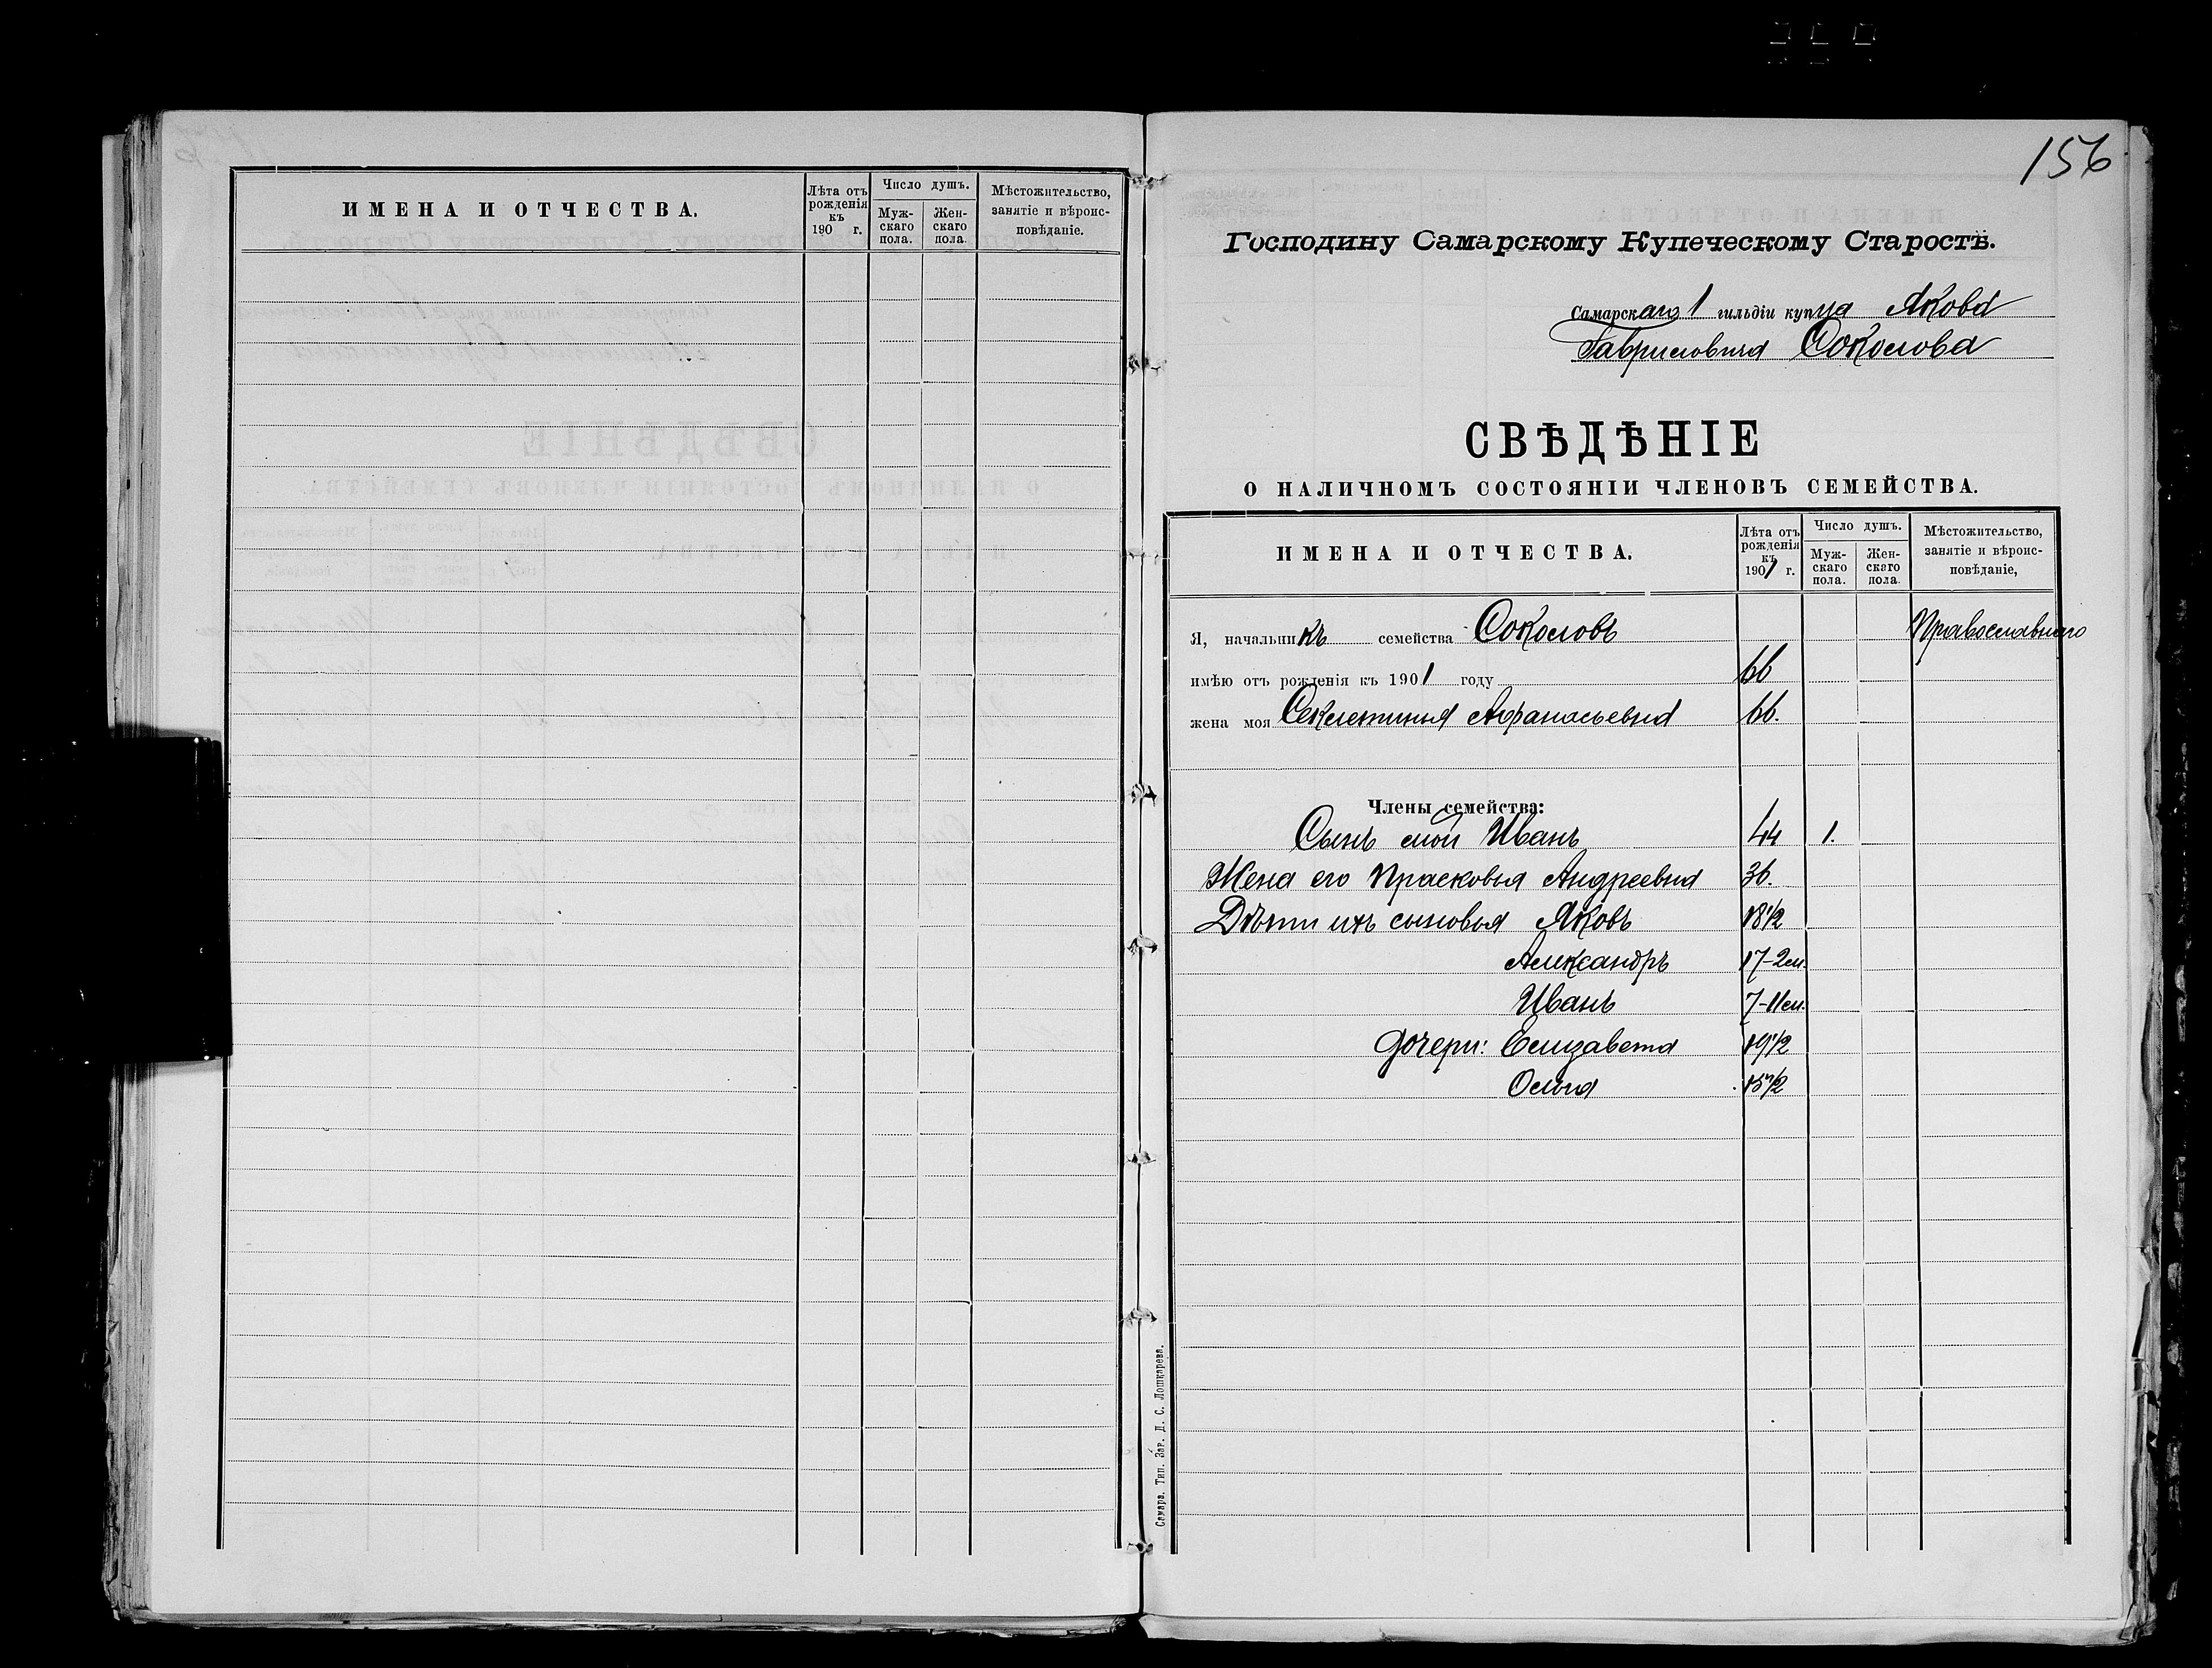 ИМЕНА И ОТЧЕСТВА.
Лѣта отъ рожденія къ 190 г.
Число душъ.
Мужскаго пола.
Женскаго пола.
Мѣстожительство, занятіе и вѣроисповѣданіе.
156
Господину Самарскому Купеческому Старостѣ.
Самарскаго 1 гильдіи купца Якова
Гавриловича Соколова
СВѢДѢНІЕ
О НАЛИЧНОМЪ СОСТОЯНІИ ЧЛЕНОВЪ СЕМЕЙСТВА.
ИМЕНА И ОТЧЕСТВА.
Лѣта отъ рожденія къ 1901 г.
Число душъ.
Мужскаго пола.
Женскаго пола.
Мѣстожительство, занятіе и вѣроисповѣданіе,
Я, начальникъ семейства Соколовъ Православнаго
имѣю отъ рожденія къ 1901 году 66
жена моя Секлетинья Афанасьевна 66.
Члены семейства:
Сынъ мой Иванъ 44 1.
Жена его Прасковья Андреевна 36.
Дѣти ихъ сыновья Яковъ 18 1/2
Александръ 17-2 м.
Иванъ 7-11 м.
дочери: Елизавета 19 1/2
Ольга 15 1/2
Самара. Тип. Заг. Д. С. Лошкарева.